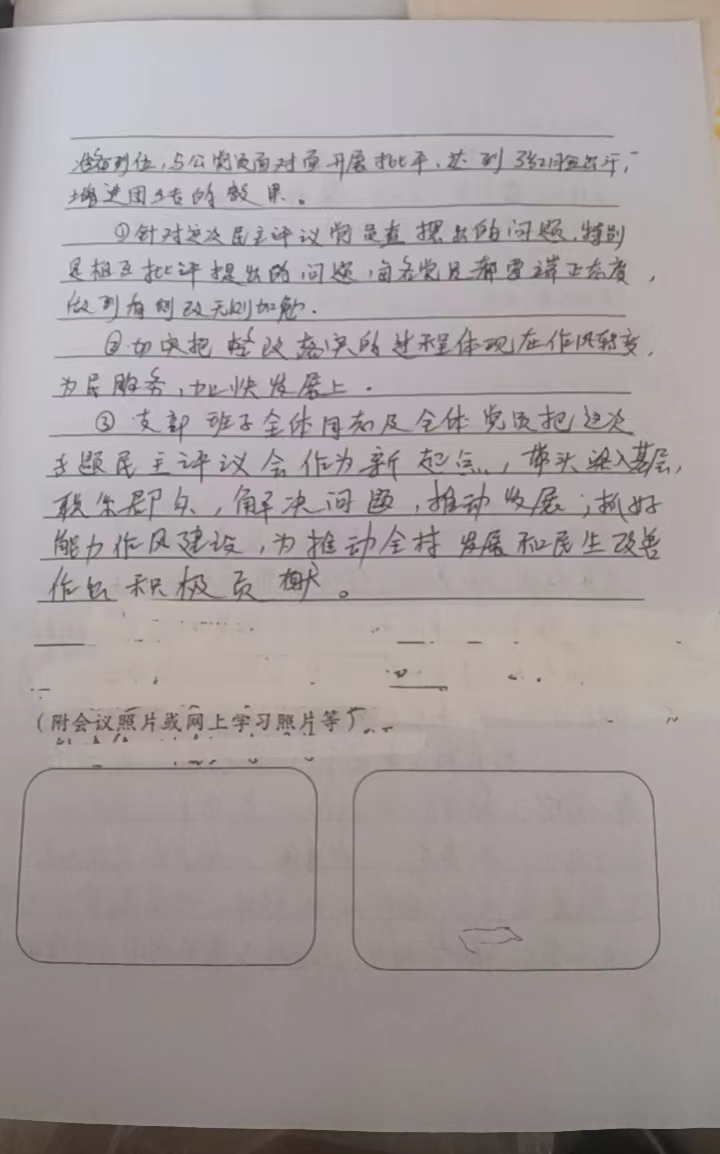 准备到位,与公党员面对面开展批评,达到
增进团结的效果。
①针对这次民主评议党员查摆出的问题,特别
是相互批评提出的问题,每名党员都要端正态度,
做到有则改无则加勉.
②切实把整改落实的过程体现在作风转变,
为民服务,加快发展上.
③支部班子全体同志及全体党员把这次
专题民主评议会作为新起点,带头深入基层,
解决问题,推动发展;抓好
能力作风建设,为推动全村发展和民生改善
作出积极贡献。
(附会议照片或网上学习照片等)